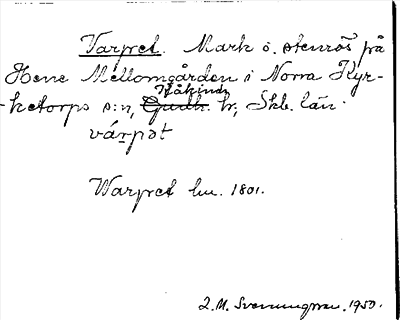 Varpet. Mark o. stenrös på
Hene Mellomgården i Norra Kyr-
ketorps s:n, Kåkinds hr, Skb. län.
várpət
Warpet lm. 1801.
L. M. Svenungsson. 1950.